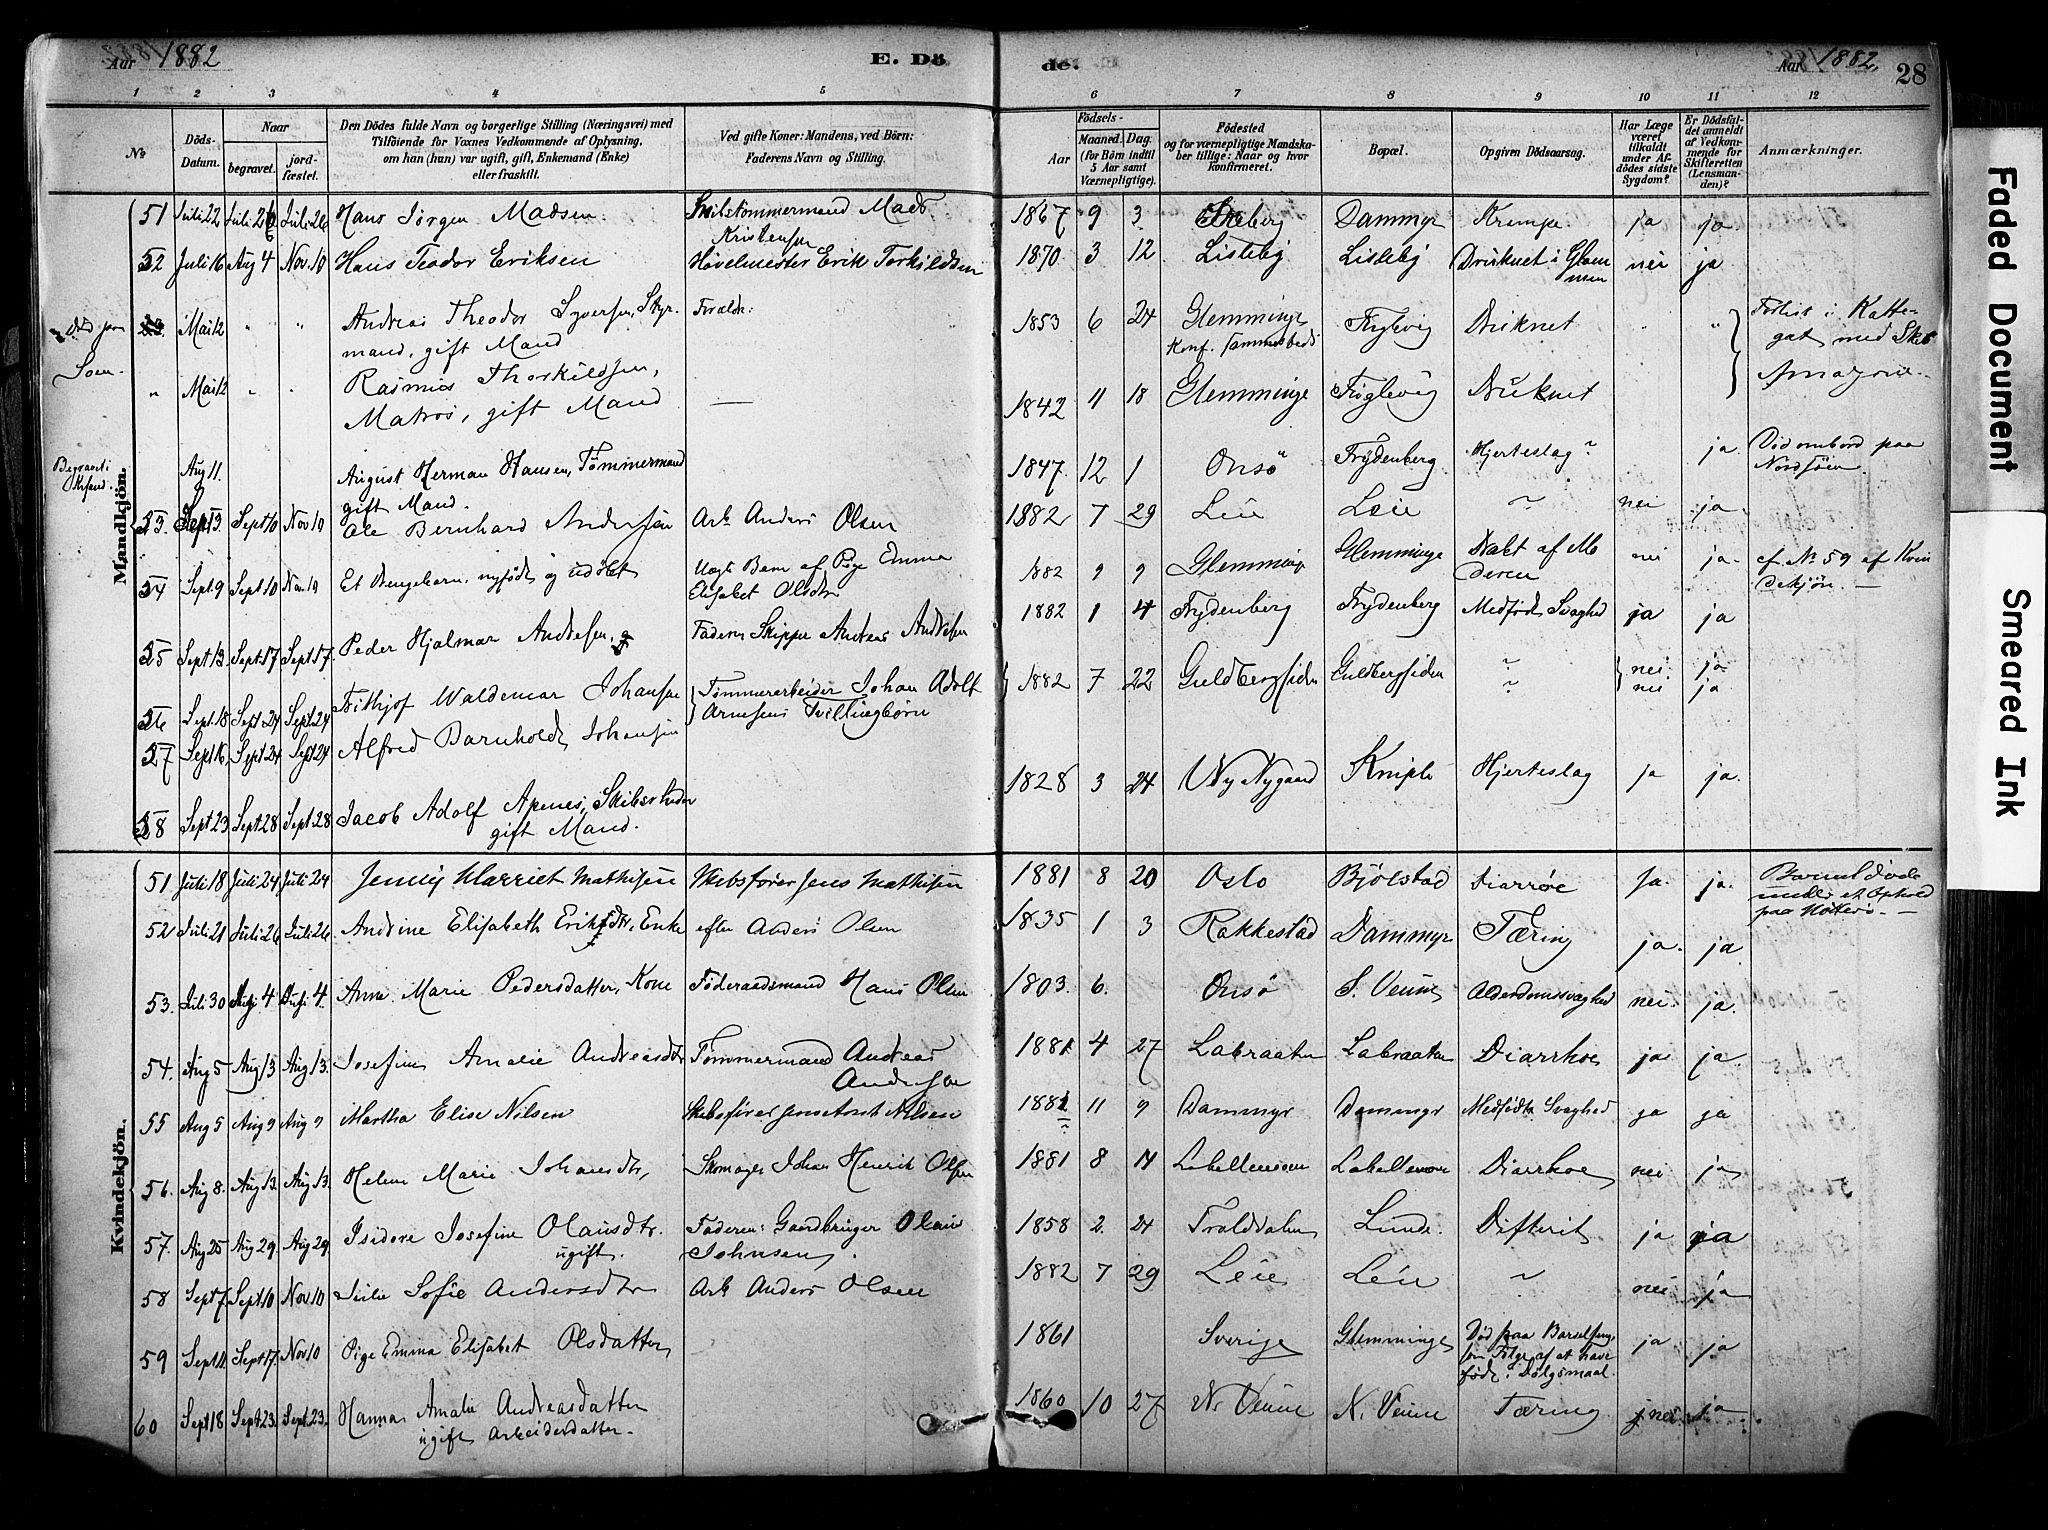 Aar 1882 E. Dö de. Aar 1882, 28
1 2 3 4 5 6 7 8 9 10 11 12
No. Döds-Datum. Naar begravet. jordfæstet. Den Dödes fulde Navn og borgerlige Stilling (Næringsvei) med Tilföiende for Voxnes Vedkommende af Oplysning, om han (hun) var ugift, gift, Enkemand (Enke) eller fraskilt. Ved gifte Koner: Mandens, ved Börn: Faderens Navn og Stilling. Födsels- Aar Maaned. Dag. (for Börn indtil 5 Aar samt Værnepligtige). Födested og for værnepligtige Mandskaber tillige: Naar og hvor konfirmeret. Bopæl. Opgiven Dödsaarsag. Har Læge været tilkaldt under Afdödes sidste Sygdom? Er Dödsfaldet anmeldt af Vedkommende for Skifteretten (Lensmanden)? Anmærkninger.
Mandkjön.
51 Juli 22 Juli 26 Juli 26 Hans Jørgen Madsen Skibstømmermand Mads Kristensen 1867 9 3 Dammyr Krampe ja ja
52 Juli 16 Aug 4 Nov. 10 Hans Teodor Eriksen Høvelmester Erik Torkildsen 1870 3 12 Lisleby Lisleby Druknet i Glommen nei ja
Mai 12 " " Andreas Theodor Syversen, Styrmand, gift Mand Forældr: 1853 6 24 Glemminge Konf. Druknet " " Forlist i Kattegat med Skib
" Mai 12 " " Rasmus Thorkildsen, Matros, gift Mand — 1842 11 18 Glemminge Druknet
Begravet i
Aug 11. August Herman Hansen, Tømmermand gift Mand. 1847 12 1 Onsø Frydenberg Hjerteslag ja Død ombord paa Nordsøen.
53. Sept 3 Sept 10 Nov 10 Ole Bernhard Andersen Arb. Anders Olsen 1882 7 29 Leie Leie ~ nei ja
54 Sept. 9 Sept 10 Nov. 10 Et Drengebarn, nyfødt og udøbt Uægte Barn af Pige Emma Elisabet Olsdtr 1882 9 9 Glemminge Glemminge Dræbt af Moderen nei ja cf. No 59 af Kvindekjøn. —
55 Sept 13 Sept 17 Sept 17. Peder Hjalmar Andresen, Faderen Skipper Andreas Andresen 1882 1 4 Frydenberg Frydenberg Medfødt Svaghed ja ja
56 Sept. 18 Sept 24 Sept. 24 Frithjof Waldemar Johansen Tømmerarbeider Johan Adolf Arnesens Tvillingbørn 1882 7 22 Guldbergsiden Guldbergsiden ~ nei ja
57 Sept 16 Sept 24 Sept 24 Alfred Barnholdt Johansen ~ nei ja
58 Sept 23 Sept 28 Sept. 28 Jacob Adolf Apenes, Skibsrheder gift Mand. 1828 3 24 Ny Nygaard Kniple Hjerteslag ja ja.
Kvindekjön.
51 Juli 18 Juli 24 Juli 24 Jenny Harriet Mathisen Skibsfører Jens Mathisen 1881 8 20 Oslo Bjølstad Diarrøe Ja. ja. Barnet døde under et Ophold paa —
52 Juli 21 Juli 26 Juli 26 Andrine Elisabeth Eriksdtr, Enke efter Anders Olsen 1835 1 3 Rakkestad Dammyr Tæring ja. ja
53. Juli 30 Aug 4 Aug 4. Anne Marie Pedersdatter, Kone Føderaadsmand Hans Olsen 1803. 6. Onsø S. Veum Alderdomssvaghed nei. ja.
54. Aug 5 Aug 13 Aug 13. Josefine Amalie Andreasdtr Tømmermand Andreas Andersen 1881 4 27 Labraaten Labraaten Diarrhoe ja ja.
55 Aug 5 Aug 9 Aug 9 Martha Elise Nilsen Skibsfører Nilsen 1881 11 9 Dammyr Dammyr Medfødt Svaghed ja ja
56. Aug 8. Aug 13. Aug 13. Helene Marie Johansdtr, Skomager Johan Henrik Olsen 1881 8 Diarrhoe nei ja
57. Aug 25 Aug 29. Aug 29. Isidore Josefine Olausdtr. ugift. Faderen: Gaardbruger Olaus Johnsen. 1858 2. 24 Lunde. Difterit ja ja
58 Sept 7. Sept 10 Nov 10 Julie Sofie Andersdtr Arb. Anders Olsen 1882 7 29 Leie Leie ~ nei ja
59 Sept 11. Sept 17. Nov 10 Pige Emma Elisabet Olsdatter 1861 Sverige Glemminge Død paa Barselseng som Følge af at have født i Dølgsmaal. ja ja
60 Sept 18. Sept. 23. Sept. 23. Hanna Amalie Andreasdatter ugift Arbeidersdatter. 1860 10 27 N. Veum N. Veum Tæring nei ja
Faded Document
Smeared Ink